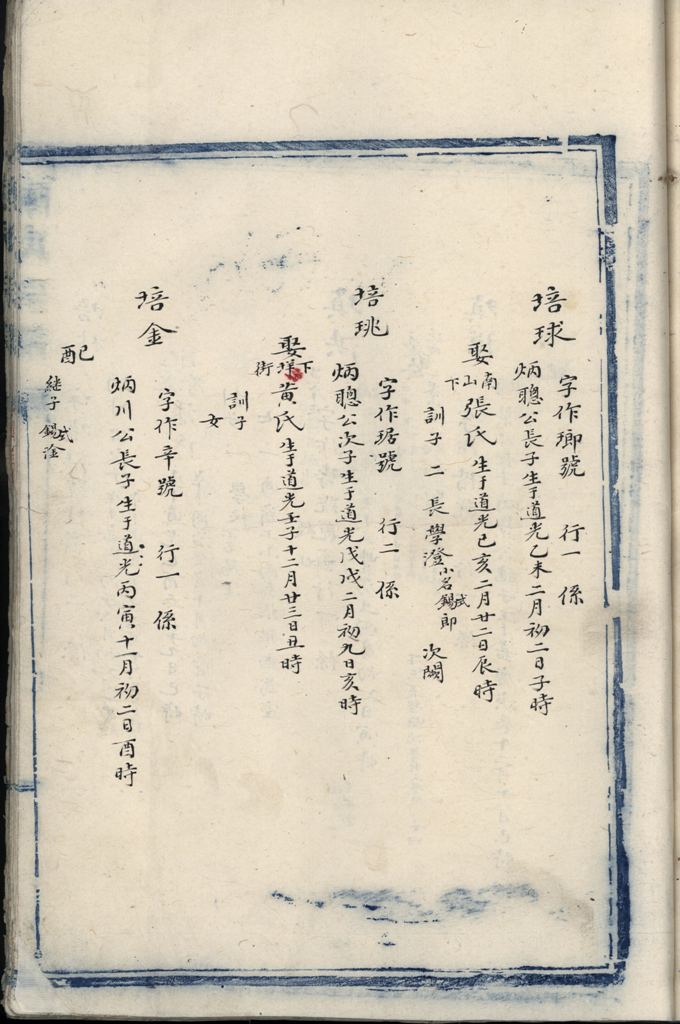 培球
字作瑯號 行一 係
炳聰公長子生于道光乙未二月初二日子時
娶南山下張氏生于道光己亥二月廿二日辰時
訓子二長學澄小名錫武郎 次闕
培珧
字作琚號 行二 係
炳聰公次子生于道光戊戌二月初九日亥時
娶下洋街黃氏生于道光壬子十二月廿三日丑時
訓子
女
培金
字作辛號 行一 係
炳川公長子生于道光丙寅十一月初二日酉時
配
継子 錫淦